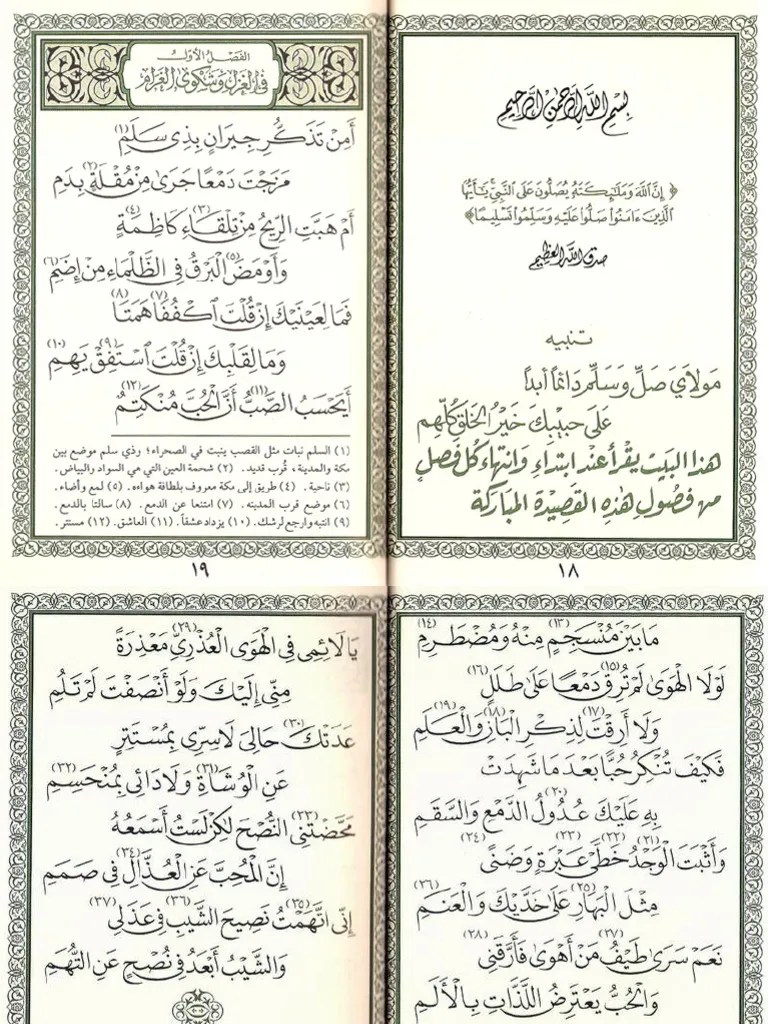 بِسْمِ اللَّهِ الرَّحْمٰنِ الرَّحِيمِ
﴿ إِنَّ اللَّهَ وَمَلَٰٓئِكَتَهُۥ يُصَلُّونَ عَلَى النَّبِيِّ يَٰٓأَيُّهَا
الَّذِينَ ءَامَنُوا۟ صَلُّوا۟ عَلَيْهِ وَسَلِّمُوا۟ تَسْلِيمًا ﴾
صدق الله العظيم
تنبيه
مَوْلَايَ صَلِّ وَسَلِّمْ دَائِمًا أَبَدًا
عَلَى حَبِيبِكَ خَيْرِ الْخَلْقِ كُلِّهِمِ
هذا البيت يقرأ عند ابتداء وانتهاء كل فصل
من فصول هذه القصيدة المباركة
١٨
الفصل الأول
في الغزل وشكوى الغرام
أَمِنْ تَذَكُّرِ جِيرَانٍ بِذِي سَلَمِ (١)
مَزَجْتَ دَمْعًا جَرَى مِنْ مُقْلَةٍ (٢) بِدَمِ
أَمْ هَبَّتِ الرِّيحُ مِنْ تِلْقَاءِ (٣) كَاظِمَةٍ (٤)
وَأَوْمَضَ (٥) الْبَرْقُ فِي الظَّلْمَاءِ مِنْ إِضَمِ (٦)
فَمَا لِعَيْنَيْكَ إِنْ قُلْتَ اكْفُفَا (٧) هَمَتَا (٨)
وَمَا لِقَلْبِكَ إِنْ قُلْتَ اسْتَفِقْ (٩) يَهِمِ (١٠)
أَيَحْسَبُ الصَّبُّ (١١) أَنَّ الْحُبَّ مُنْكَتِمٌ (١٢)
(١) السلم نبات مثل القصب ينبت في الصحراء؛ وذي سلم موضع بين
مكة والمدينة، قرب قديد. (٢) شحمة العين التي هي السواد والبياض.
(٣) ناحية. (٤) طريق إلى مكة معروف بلطافة هواءه. (٥) لمع وأضاء.
(٦) موضع قرب المدينة. (٧) امتنعا عن الدمع. (٨) سالتا بالدمع.
(٩) انتبه وارجع لرشك. (١٠) يزداد عشقاً. (١١) العاشق. (١٢) مستتر.
١٩
مَا بَيْنَ مُنْسَجِمٍ (١٣) مِنْهُ وَمُضْطَرِمِ (١٤)
لَوْلَا الْهَوَى لَمْ تُرِقْ (١٥) دَمْعًا عَلَى طَلَلٍ (١٦)
وَلَا أَرِقْتَ (١٧) لِذِكْرِ الْبَانِ (١٨) وَالْعَلَمِ (١٩)
فَكَيْفَ تُنْكِرُ حُبًّا بَعْدَ مَا شَهِدَتْ
بِهِ عَلَيْكَ عُدُولُ (٢٠) الدَّمْعِ وَالسَّقَمِ
وَأَثْبَتَ الْوَجْدُ (٢١) خَطَّيْ (٢٢) عَبْرَةٍ (٢٣) وَضَنًى (٢٤)
مِثْلَ الْبَهَارِ (٢٥) عَلَى خَدَّيْكَ وَالْعَنَمِ (٢٦)
نَعَمْ سَرَى طَيْفُ (٢٧) مَنْ أَهْوَى فَأَرَّقَنِي (٢٨)
وَالْحُبُّ يَعْتَرِضُ اللَّذَّاتِ بِالْأَلَمِ
يَا لَائِمِي فِي الْهَوَى الْعُذْرِيِّ (٢٩) مَعْذِرَةً
مِنِّي إِلَيْكَ وَلَوْ أَنْصَفْتَ لَمْ تَلُمِ
عَدَتْكَ (٣٠) حَالِيَ لَا سِرِّي بِمُسْتَتِرٍ
عَنِ الْوُشَاةِ (٣١) وَلَا دَائِي بِمُنْحَسِمِ (٣٢)
مَحَّضْتَنِي (٣٣) النُّصْحَ لَكِنْ لَسْتُ أَسْمَعُهُ
إِنَّ الْمُحِبَّ عَنِ الْعُذَّالِ (٣٤) فِي صَمَمِ
إِنِّي اتَّهَمْتُ (٣٥) نَصِيحَ الشَّيْبِ (٣٦) فِي عَذَلِي (٣٧)
وَالشَّيْبُ أَبْعَدُ فِي نُصْحٍ عَنِ التُّهَمِ